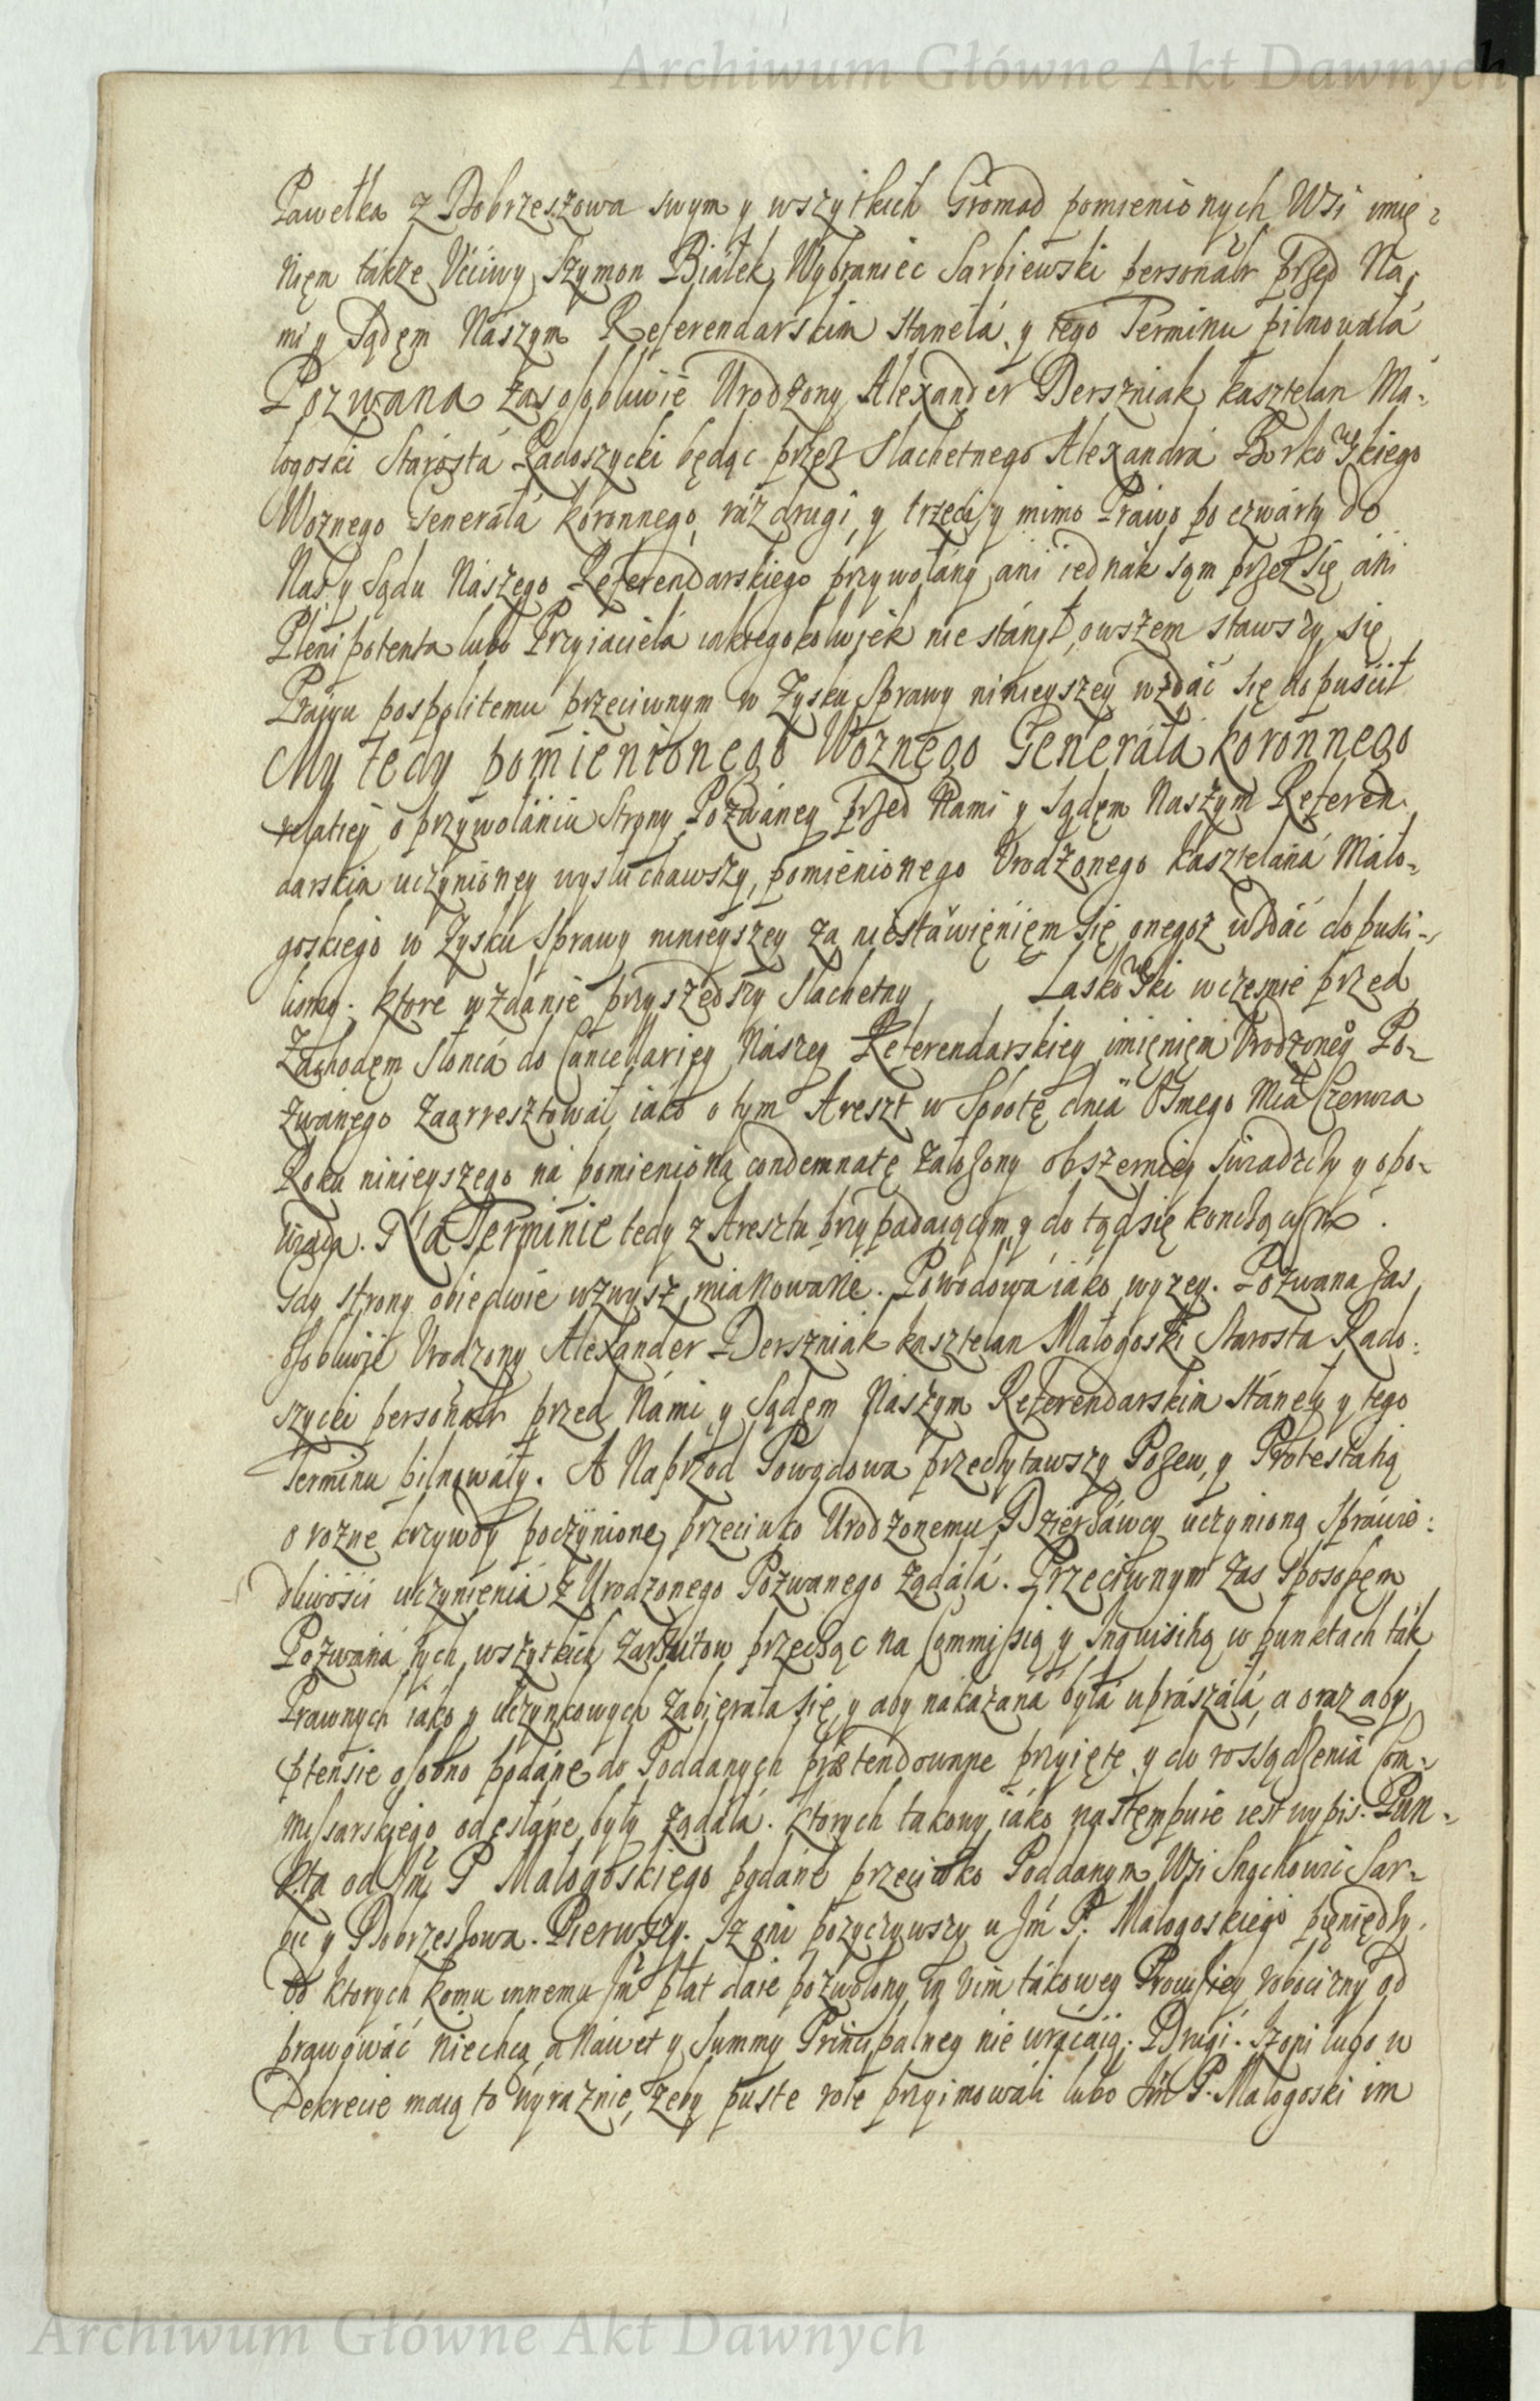 Archiwum Główne Akt Dawnych
Pawełka z Dobrzeszowa swym y wszytkich Gromad pomienionych Wsi imię-
nięm także Vcciwy Szymon Białek Wybraniec Sarbiewski personalr przed Na-
mi y Sądęm Nászym Referendarskim stanełá y tego Terminu pilnowáłá
Pozwana zas osobliwie Urodzony Alexander Derszniak kasztelan Ma-
łogoski Stárostá Radoszycki będąc przez Slachetnego Alexandrá Borkowskiego
Woznego Generałá koronnego, raz drugi, y trzeci, y mimo Práwo po czwarty do
Nas y Sądu Nászego Referendarskiego przywołány, ani iednák sąm przez się áni
Plenipotenta lubo Przyiacielá iakiegokolwiek nie stánął, owszem stawszy się
Práwu pospolitemu przeciwnym w Zysku Sprawy ninieyszey wzdáć się dopuścił
My tedy pomienionego Woznego Generáłá koronnego
relatiey o przywołániu Strony Pozwáney przed Nami y Sądęm Naszym Referen
darskim uczynioney wysłuchawszy, pomienionego Vrodzonego kasztelaná Mało-
goskiego w Zysku Sprawy ninieyszey za niestáwięnięm się onegoz wzdáć dopuści-
lismy. ktore wzdánie przyszedszy Slachetny Laskowski wczesnie przed
Zachodęm Słoncá do Cancellariey Nászey Referendarskiey imięnięm Vrodzone͠g Po-
zwánego zaarresztował iáko o tym Areszt w Sobotę dniá Osmego Mcá Czerwca
Roku ninieyszego ná pomienioną condemnatę założony obszerniey swiadczy y opo-
wiáda. Na Terminie tedy z Aresztu przypadaiącym y do tąd się konczącym.
Gdy strony obiedwie wzwysz mianowáné. Powodowa iáko wyzey. Pozwana zas
osobliwie Vrodzony Alexander Derszniak kasztelan Małogoski Starosta Rado-
szycki personalr przed Námi y Sądęm Nászym Referendarskim stáneły y tego
Terminu pilnowáły. A Naprzod Powodowa przeczytawszy Pozew, y Protestatią
o rozne krzywdy poczynione przeciwko Urodzonemu Dzierżáwcy uczynioną Spráwie-
dliwości uczynieniá z Urodzonego Pozwanego żądáłá. Przeciwnym zas sposobęm
Pozwáná tych wszytkich zarzutow przecząc na Commissią y Inquisitią w punktach ták
Prawnych iáko y uczynkowych zabieráła się, y aby nakazáná byłá upraszáłá, a oraz aby
ptensie osobno podáne do Poddanych prætendowane przyięte y do rossądzeniá Com-
missarskiego odesłáne były żądáłá. ktorych takowy iáko nastempuie iest wypis. Pun-
kta od Jm͠ P Małogoskiego podáne przeciwko Poddanym Wsi Snochowic Sar-
bic y Dobrzeszowa. Pierwszy. Iz oni pożyczywszy u Jm͠ P. Małogoskiego pięniędzy,
od ktorych komu innemu Jm͠ płat daie pozwolony in vim tákowey Prowisiey robocizny od
prawowáć niechcą, a Náwet y Summy Principalney nie wracáią. Drugi. Iz oni lubo w
Dekrecie maią to wyraznie, żeby puste role przyimowáli lubo Jm͠ P. Małogoski im
Archiwum Główne Akt Dawnych